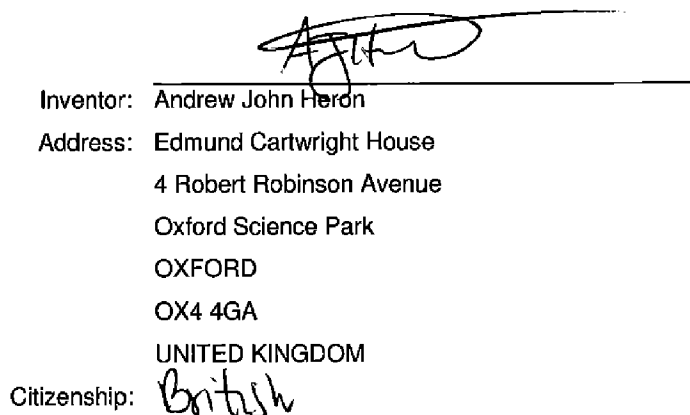 Inventor: Andrew John Heron
Address: Edmund Cartwright House
4 Robert Robinson Avenue
Oxford Science Park
OXFORD
OX4 4GA
UNITED KINGDOM
Citizenship: British